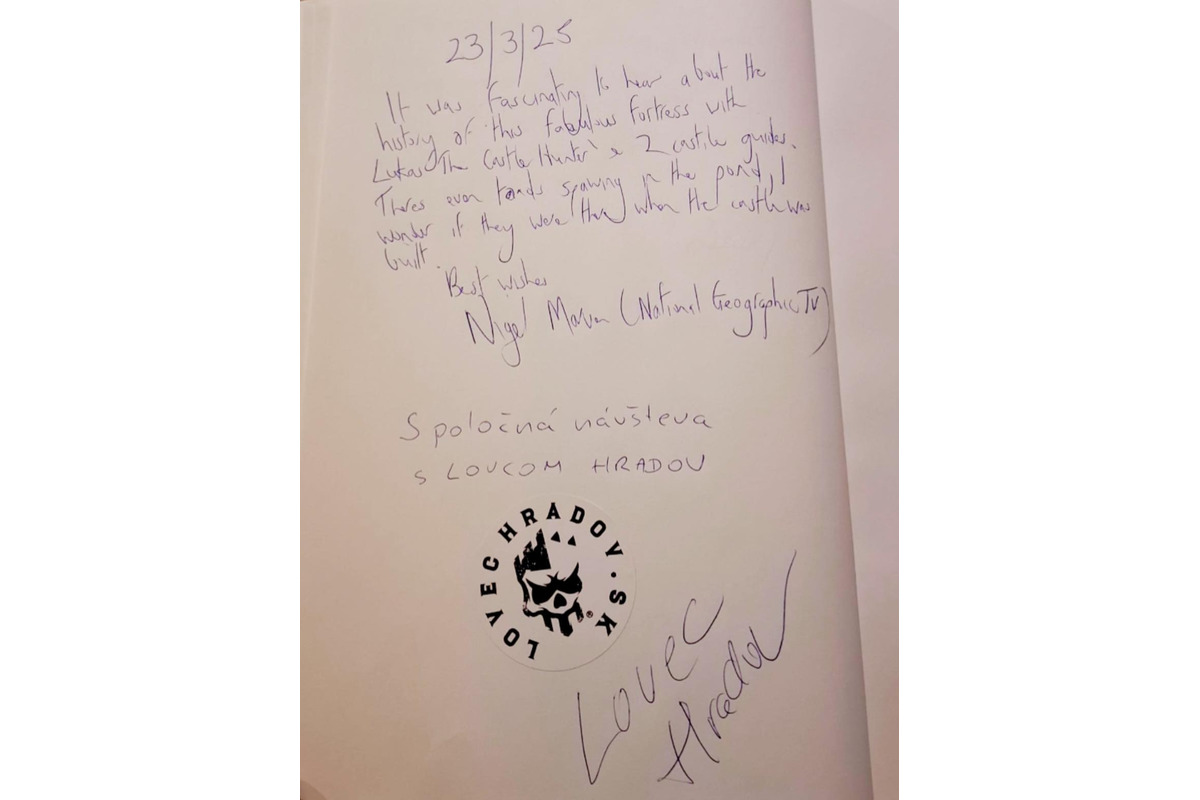 23/3/25
It was fascinating to hear about the
history of this fabulous fortress with
Lukas 'The Castle Hunter' & 2 castle guides.
Theres even toads spawing in the pond, I
wonder if they were there when the castle was
built.
Best wishes
Nigel Marven (National Geographic TV)
Spoločná návšteva
s LOVCOM HRADOV
LOVEC HRADOV.SK
®
Lovec
Hradov